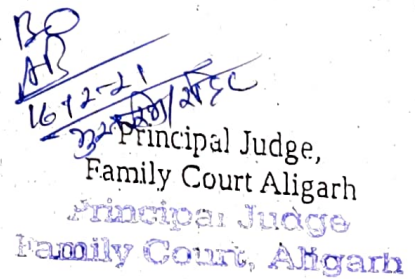 BO
AB
16-12-21
Principal Judge,
Family Court Aligarh
Principal Judge
Family Court, Aligarh